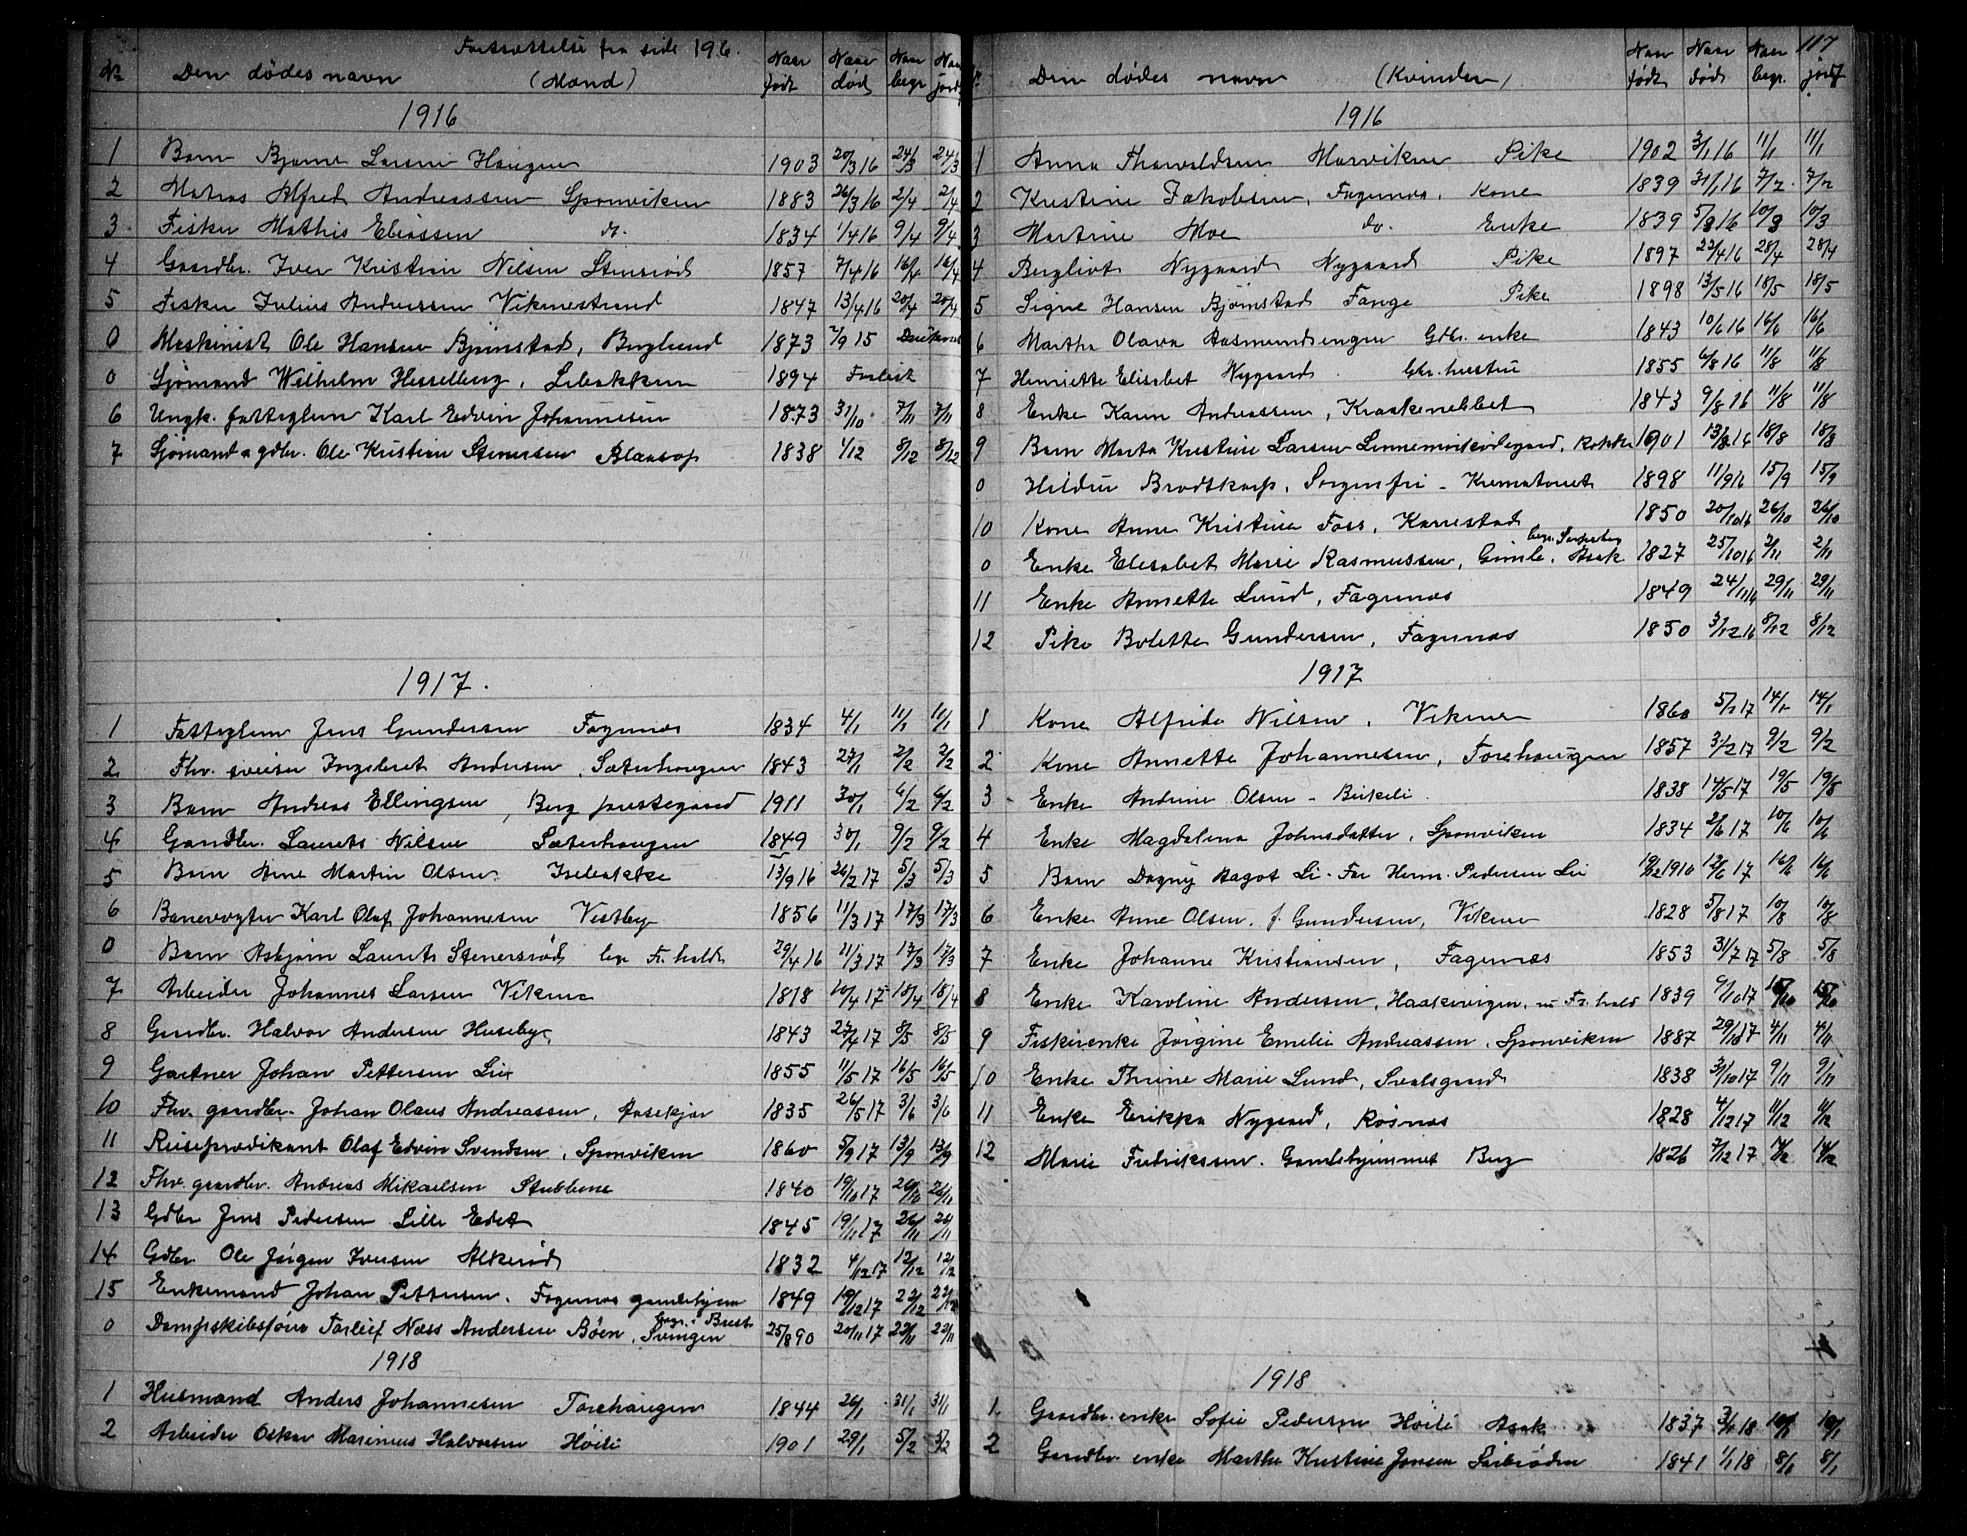 Fortsættelse fra side 196.
Nr Den dødes navn (Mænd) Naar født Naar død Naar begr Naar jordf
1916
1 Barn Bjarne Larsen Haugen 1903 20/3 16 24/3 24/3
2 Matros Alfred Andreassen Sponviken 1883 26/3 16 2/4 2/4
3 Fisker Mathis Eliassen do. 1834 1/4 16 9/4 9/4
4 Gaardbr. Iver Kristian Nilsen Stensrød 1857 7/4 16 16/4 16/4
5 Fisker Julius Andersen Vikenestrand 1847 13/4 16 20/4 20/4
0 Maskinist Ole Hansen Bjørnstad, Berglund 1873 7/9 15
0 Sjømand Wilhelm Hesselberg, Libakken 1894 Forlist
6 Ungk. fatteglem Karl Edvin Johannesen 1873 31/10 7/11 7/11
7 Sjømand & gdbr. Ole Kristian Stenersen Blaasop 1838 1/12 8/12 8/12
1917.
1 Fatteglem Jens Gundersen Fagernæs 1834 4/1 11/1 11/1
2 Fhv. sveiser Ingebret Andersen, Sæterhaugen 1843 27/1 2/2 2/2
3 Barn Andreas Ellingsen, Berg prestegaard 1911 30/1 6/2 6/2
4 Gaardbr. Laurits Nilsen Sæterhaugen 1849 30/1 9/2 9/2
5 Barn Arne Martin Olsen Isebakke 13/9 16 26/2 17 5/3 5/3
6 Banevogter Karl Olaf Johannesen Vestby 1856 11/3 17 17/3 17/3
0 Barn Asbjørn Laurits Stenersrød begr Fr.hald 29/4 16 11/3 17 17/3 17/3
7 Arbeider Johannes Larsen Vikene 1818 10/4 17 18/4 18/4
8 Gaardbr. Halvor Andersen Huseby 1843 27/4 17 8/5 8/5
9 Gartner Johan Pettersen Lie 1855 11/5 17 16/5 16/5
10 Fhv. gaardbr. Johan Olaus Andreassen, Aasekjær 1835 26/5 17 3/6 3/6
11 Reisepredikant Olaf Edvin Svendsen, Sponviken 1860 5/9 17 13/9 13/9
12 Fhv. gaardbr. Andreas Mikaelsen Stubbene 1840 19/10 17 26/10 26/10
13 Gdbr Jens Pedersen Lille Edet 1845 19/11 17 26/11 26/11
14 Gdbr Ole Jørgen Iversen Alkerød 1832 4/12 17 12/12 12/12
15 Enkemand Johan Pettersen. Fagernæs gamlehjem 1849 19/12 17 22/12 22/12
begr. i Brest
0 Dampskibsfører Torleif Næss Andersen Bøen, Svingen 25/8 90 20/11 17 22/11 22/11
1918
1 Husmand Anders Johannesen Torehaugen 1844 26/1 31/1 31/1
2 Arbeider Oskar Marinius Halvorsen Høili 1901 29/1 5/2 5/2
117
Nr Den dødes navn (Kvinder) Naar født Naar død Naar begr. jordf
1916
1 Anna Thorvaldsen Marviken Pike 1902 3/1 16 11/1 11/1
2 Kristine Jakobsen, Fagernæs, Kone 1839 31/1 16 7/2 7/2
3 Martine Moe do. Enke 1839 5/3 16 10/3 10/3
4 Bergliot Nygaard Nygaard Pike 1897 22/4 16 28/4 28/4
5 Signe Hansen Bjørnstad Fange Pike 1898 13/5 16 18/5 18/5
6 Martha Olava Aasmundsengen Gdbr. enke 1843 10/6 16 16/6 16/6
7 Henriette Elisabet Nygaard. Gbr. hustru 1855 6/8 16 11/8 11/8
8 Enke Karen Andreassen, Kraakenebbet 1843 9/8 16 11/8 11/8
9 Barn Marta Kristine Larsen Rokke 1901 13/8 16 18/8 18/8
0 Hildur Brodtkorp, Sorgenfri - Krematoriet 1898 11/9 16 15/9 15/9
10 Kone Anne Kristine Foss, Karrestad 1850 20/10 16 26/10 26/10
begr. Sarpsborg
0 Enke Elisabet Marie Rasmussen, Gimle, Asak 1827 25/10 16 2/11 2/11
11 Enke Annette Lund, Fagernæs 1849 24/11 16 29/11 29/11
12 Pike Bolette Gundersen, Fagernæs 1850 3/12 16 8/12 8/12
1917
1 Kone Alfrida Nilsen, Vikene 1860 5/1 17 14/1 14/1
2 Kone Annette Johannesen, Torehaugen 1857 3/2 17 9/2 9/2
3 Enke Andrine Olsen - Birkeli. 1838 14/5 17 19/5 19/5
4 Enke Magdalena Johnsdatter, Sponviken 1834 2/6 17 10/6 10/6
5 Barn Dagny Aagot Li. Far Herm. Pedersen Lie 19/12 1910 12/6 17 16/6 16/6
6 Enke Anne Olsen, f. Gundersen, Vikene 1828 5/8 17 10/8 10/8
7 Enke Johanne Kristiansen, Fagernæs 1853 31/7 17 5/8 5/8
8 Enke Karoline Andersen, Haakevigen, nu Fr.hald 1839 9/10 17 15/10 15/10
9 Fiskerenke Jørgine Emelie Andreassen, Sponviken 1887 29/10 17 4/11 4/11
10 Enke Thrine Marie Lund, Svalsgaard 1838 31/10 17 9/11 9/11
11 Enke Erikka Nygaard, Røsnæs 1828 4/12 17 11/12 11/12
12 Marie Fredrikssen. Gamlehjemmet Berg 1826 7/12 17 14/12 14/12
1918
1. Gaardbr. enke Sofie Pedersen Høili Asak 1837 3/1 18 10/1 10/1
2 Gaardbr. enke Marthe Kristine Jensen Sørbrøden 1841 1/1 18 8/1 8/1